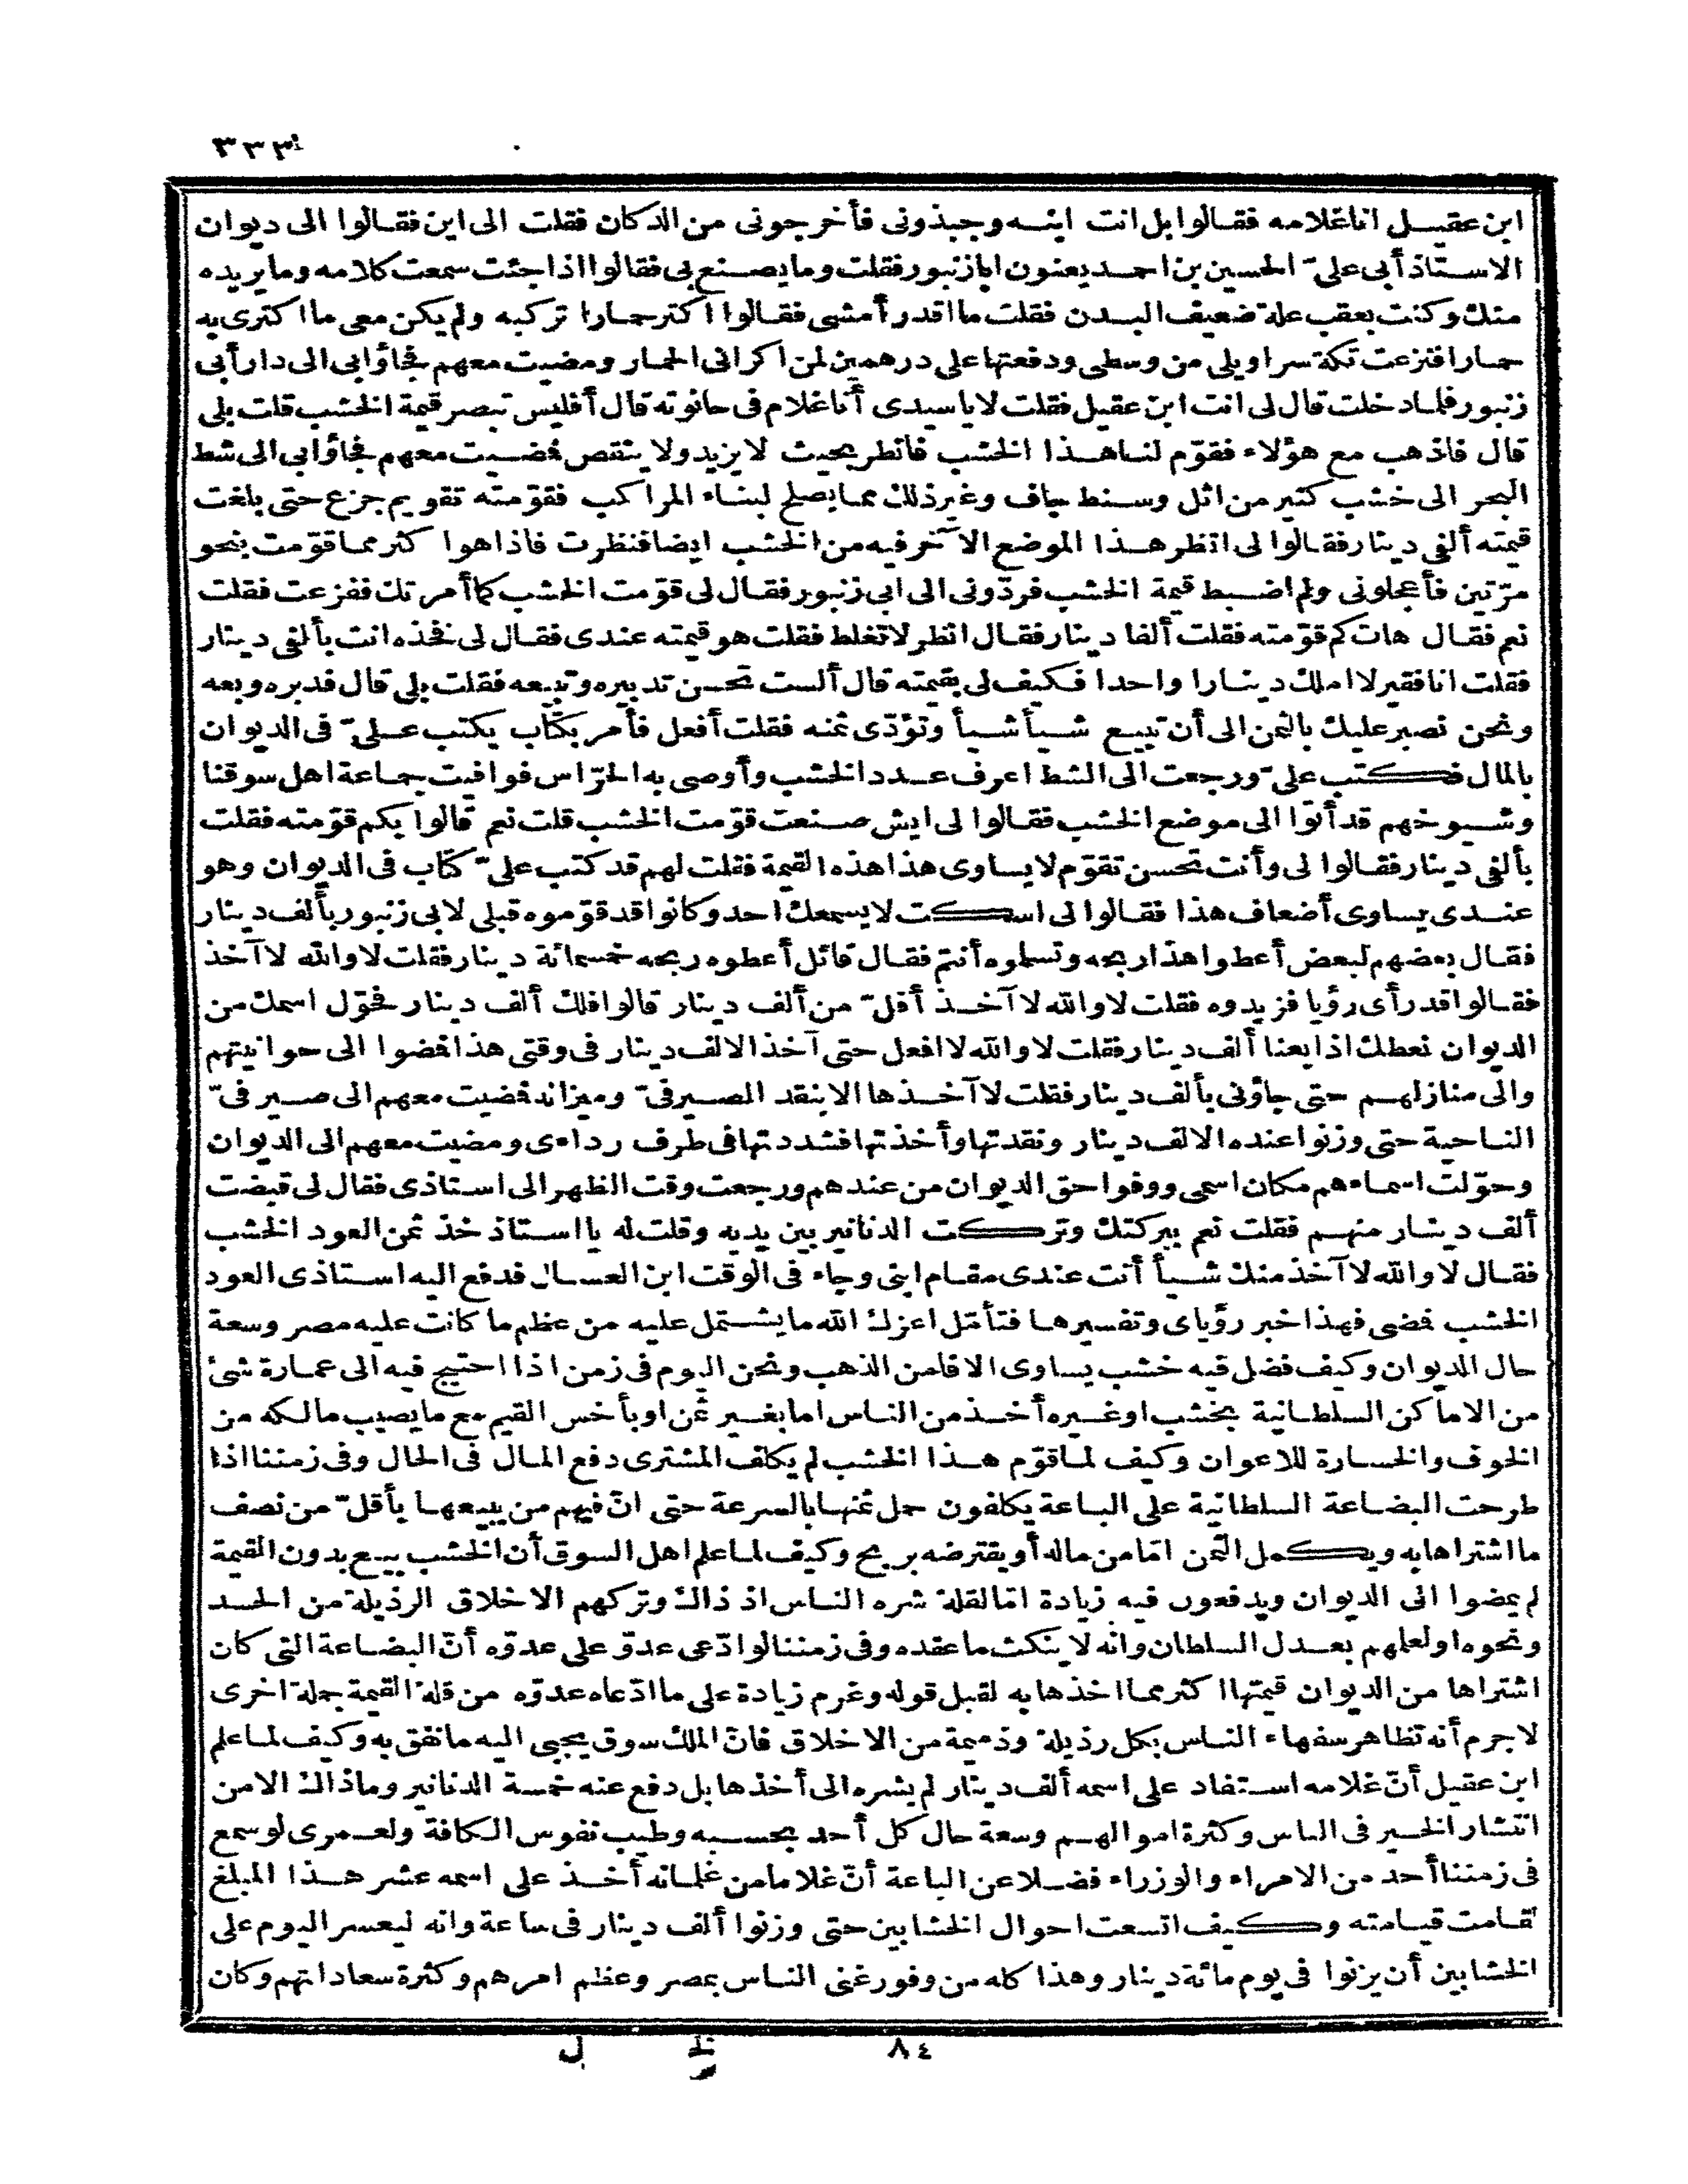 ٣٣٣
ابن عقيل انا غلامه فقالوا بل انت ابنه وجبذوني فأخرجوني من الدكان فقلت الى اين فقالوا الى ديوان
الاستاذ أبي عليّ الحسين بن احمد يعنون ابا زنبور فقلت وما يصنع بي فقالوا اذا جئت سمعت كلامه وما يريده
منك وكنت بعقب علة ضعيف البدن فقلت ما اقدر أمشي فقالوا اكتر حمارا تركبه ولم يكن معي ما اكترى به
حمارا فنزعت تكة سراويلي من وسطي ودفعتها على درهمين لمن اكراني الحمار ومضيت معهم فجاؤا بي الى دار أبي
زنبور فلما دخلت قال لي انت ابن عقيل فقلت لا يا سيدي أنا غلام في حانوته قال أفليس تبصر قيمة الخشب قلت بلى
قال فاذهب مع هؤلاء فقوّم لنا هذا الخشب فانظر بحيث لا يزيد ولا ينقص فمضيت معهم فجاؤا بي الى شط
البحر الى خشب كثير من اثل وسنط جاف وغير ذلك مما يصلح لبناء المراكب فقوّمته تقويم جزع حتى بلغت
قيمته ألفي دينار فقالوا لي انظر هذا الموضع الآخر فيه من الخشب ايضا فنظرت فاذا هو اكثر مما قوّمت بنحو
مرّتين فأعجلوني ولم اضبط قيمة الخشب فردّوني الى ابي زنبور فقال لي قوّمت الخشب كما أمرتك ففزعت فقلت
نعم فقال هات كم قوّمته فقلت ألفا دينار فقال انظر لا تغلط فقلت هو قيمته عندي فقال لي فخذه انت بألفي دينار
فقلت انا فقير لا املك دينارا واحدا فكيف لي بقيمته قال ألست تحسن تدبيره وتبيعه فقلت بلى قال فدبره وبعه
ونحن نصبر عليك بالثمن الى أن تبيع شيأ شيأ وتؤدّي ثمنه فقلت أفعل فأمر بكتاب يكتب عليّ في الديوان
بالمال فكتب عليّ ورجعت الى الشط اعرف عدد الخشب وأوصي به الحرّاس فوافيت جماعة اهل سوقنا
وشيوخهم قد أتوا الى موضع الخشب فقالوا لي ايش صنعت قوّمت الخشب قلت نعم قالوا بكم قوّمته فقلت
بألفي دينار فقالوا لي وأنت تحسن تقوّم لا يساوى هذا هذه القيمة فقلت لهم قد كتب عليّ كتاب في الديوان وهو
عندي يساوي أضعاف هذا فقالوا لي اسكت لا يسمعك احد وكانوا قد قوّموه قبلي لابي زنبور بألف دينار
فقال بعضهم لبعض أعطوا هذا ربحه وتسلموه أنتم فقال قائل أعطوه ربحه خمسمائة دينار فقلت لا والله لا آخذ
فقالوا قد رأى رؤيا فزيدوه فقلت لا والله لا آخذ أقلّ من ألف دينار قالوا فلك ألف دينار فحوّل اسمك من
الديوان نعطك اذا بعنا ألف دينار فقلت لا والله لا افعل حتى آخذ الالف دينار في وقتي هذا فمضوا الى حوانيتهم
والى منازلهم حتى جاؤني بألف دينار فقلت لا آخذها الا بنقد الصيرفيّ وميزانه فمضيت معهم الى صيرفيّ
الناحية حتى وزنوا عنده الالف دينار ونقدتها وأخذتها فشددتها في طرف رداءي ومضيت معهم الى الديوان
وحوّلت اسماءهم مكان اسمي ووفوا حق الديوان من عندهم ورجعت وقت الظهر الى استاذي فقال لي قبضت
ألف دينار منهم فقلت نعم ببركتك وتركت الدنانير بين يديه وقلت له يا استاذ خذ ثمن العود الخشب
فقال لا والله لا آخذ منك شيأ أنت عندي مقام ابني وجاء في الوقت ابن العسال فدفع اليه استاذي العود
الخشب فمضى فهذا خبر رؤياى وتفسيرها فتأمّل اعزك الله ما يشتمل عليه من عظم ما كانت عليه مصر وسعة
حال الديوان وكيف فضل فيه خشب يساوى الافا من الذهب ونحن اليوم في زمن اذا احتيج فيه الى عمارة شئ
من الاماكن السلطانية بخشب او غيره أخذ من الناس اما بغير ثمن او بأخس القيم مع ما يصيب مالكه من
الخوف والخسارة للاعوان وكيف لما قوّم هذا الخشب لم يكلف المشترى دفع المال في الحال وفي زمننا اذا
طرحت البضاعة السلطانية على الباعة يكلفون حمل ثمنها بالسرعة حتى انّ فيهم من يبيعها بأقلّ من نصف
ما اشتراها به ويكمل الثمن امّا من ماله أو يقترضه بربح وكيف لما علم اهل السوق أن الخشب بيع بدون القيمة
لم يمضوا الى الديوان ويدفعون فيه زيادة امّا لقلة شره الناس اذ ذاك وتركهم الاخلاق الرذيلة من الحسد
ونحوه او لعلمهم بعدل السلطان وانه لا ينكث ما عقده وفي زمننا لو ادّعى عدوّ على عدوّه أنّ البضاعة التي كان
اشتراها من الديوان قيمتها اكثر مما اخذها به لقبل قوله وغرم زيادة على ما ادّعاه عدوّه من قلة القيمة جملة اخرى
لاجرم أنه تظاهر سفهاء الناس بكل رذيلة وذميمة من الاخلاق فانّ الملك سوق يجبى اليه ما نفق به وكيف لما علم
ابن عقيل أنّ غلامه استفاد على اسمه ألف دينار لم يشره الى أخذها بل دفع عنه خمسة الدنانير وما ذاك الا من
انتشار الخير في الناس وكثرة اموالهم وسعة حال كل أحد بحسبه وطيب نفوس الكافة ولعمرى لو سمع
في زمننا أحد من الامراء والوزراء فضلا عن الباعة أنّ غلاما من غلمانه أخذ على اسمه عشر هذا المبلغ
لقامت قيامته وكيف اتسعت احوال الخشابين حتى وزنوا ألف دينار في ساعة وانه ليعسر اليوم على
الخشابين أن يزنوا في يوم مائة دينار وهذا كله من وفور غنى الناس بمصر وعظم امرهم وكثرة سعاداتهم وكان
٨٤ ل